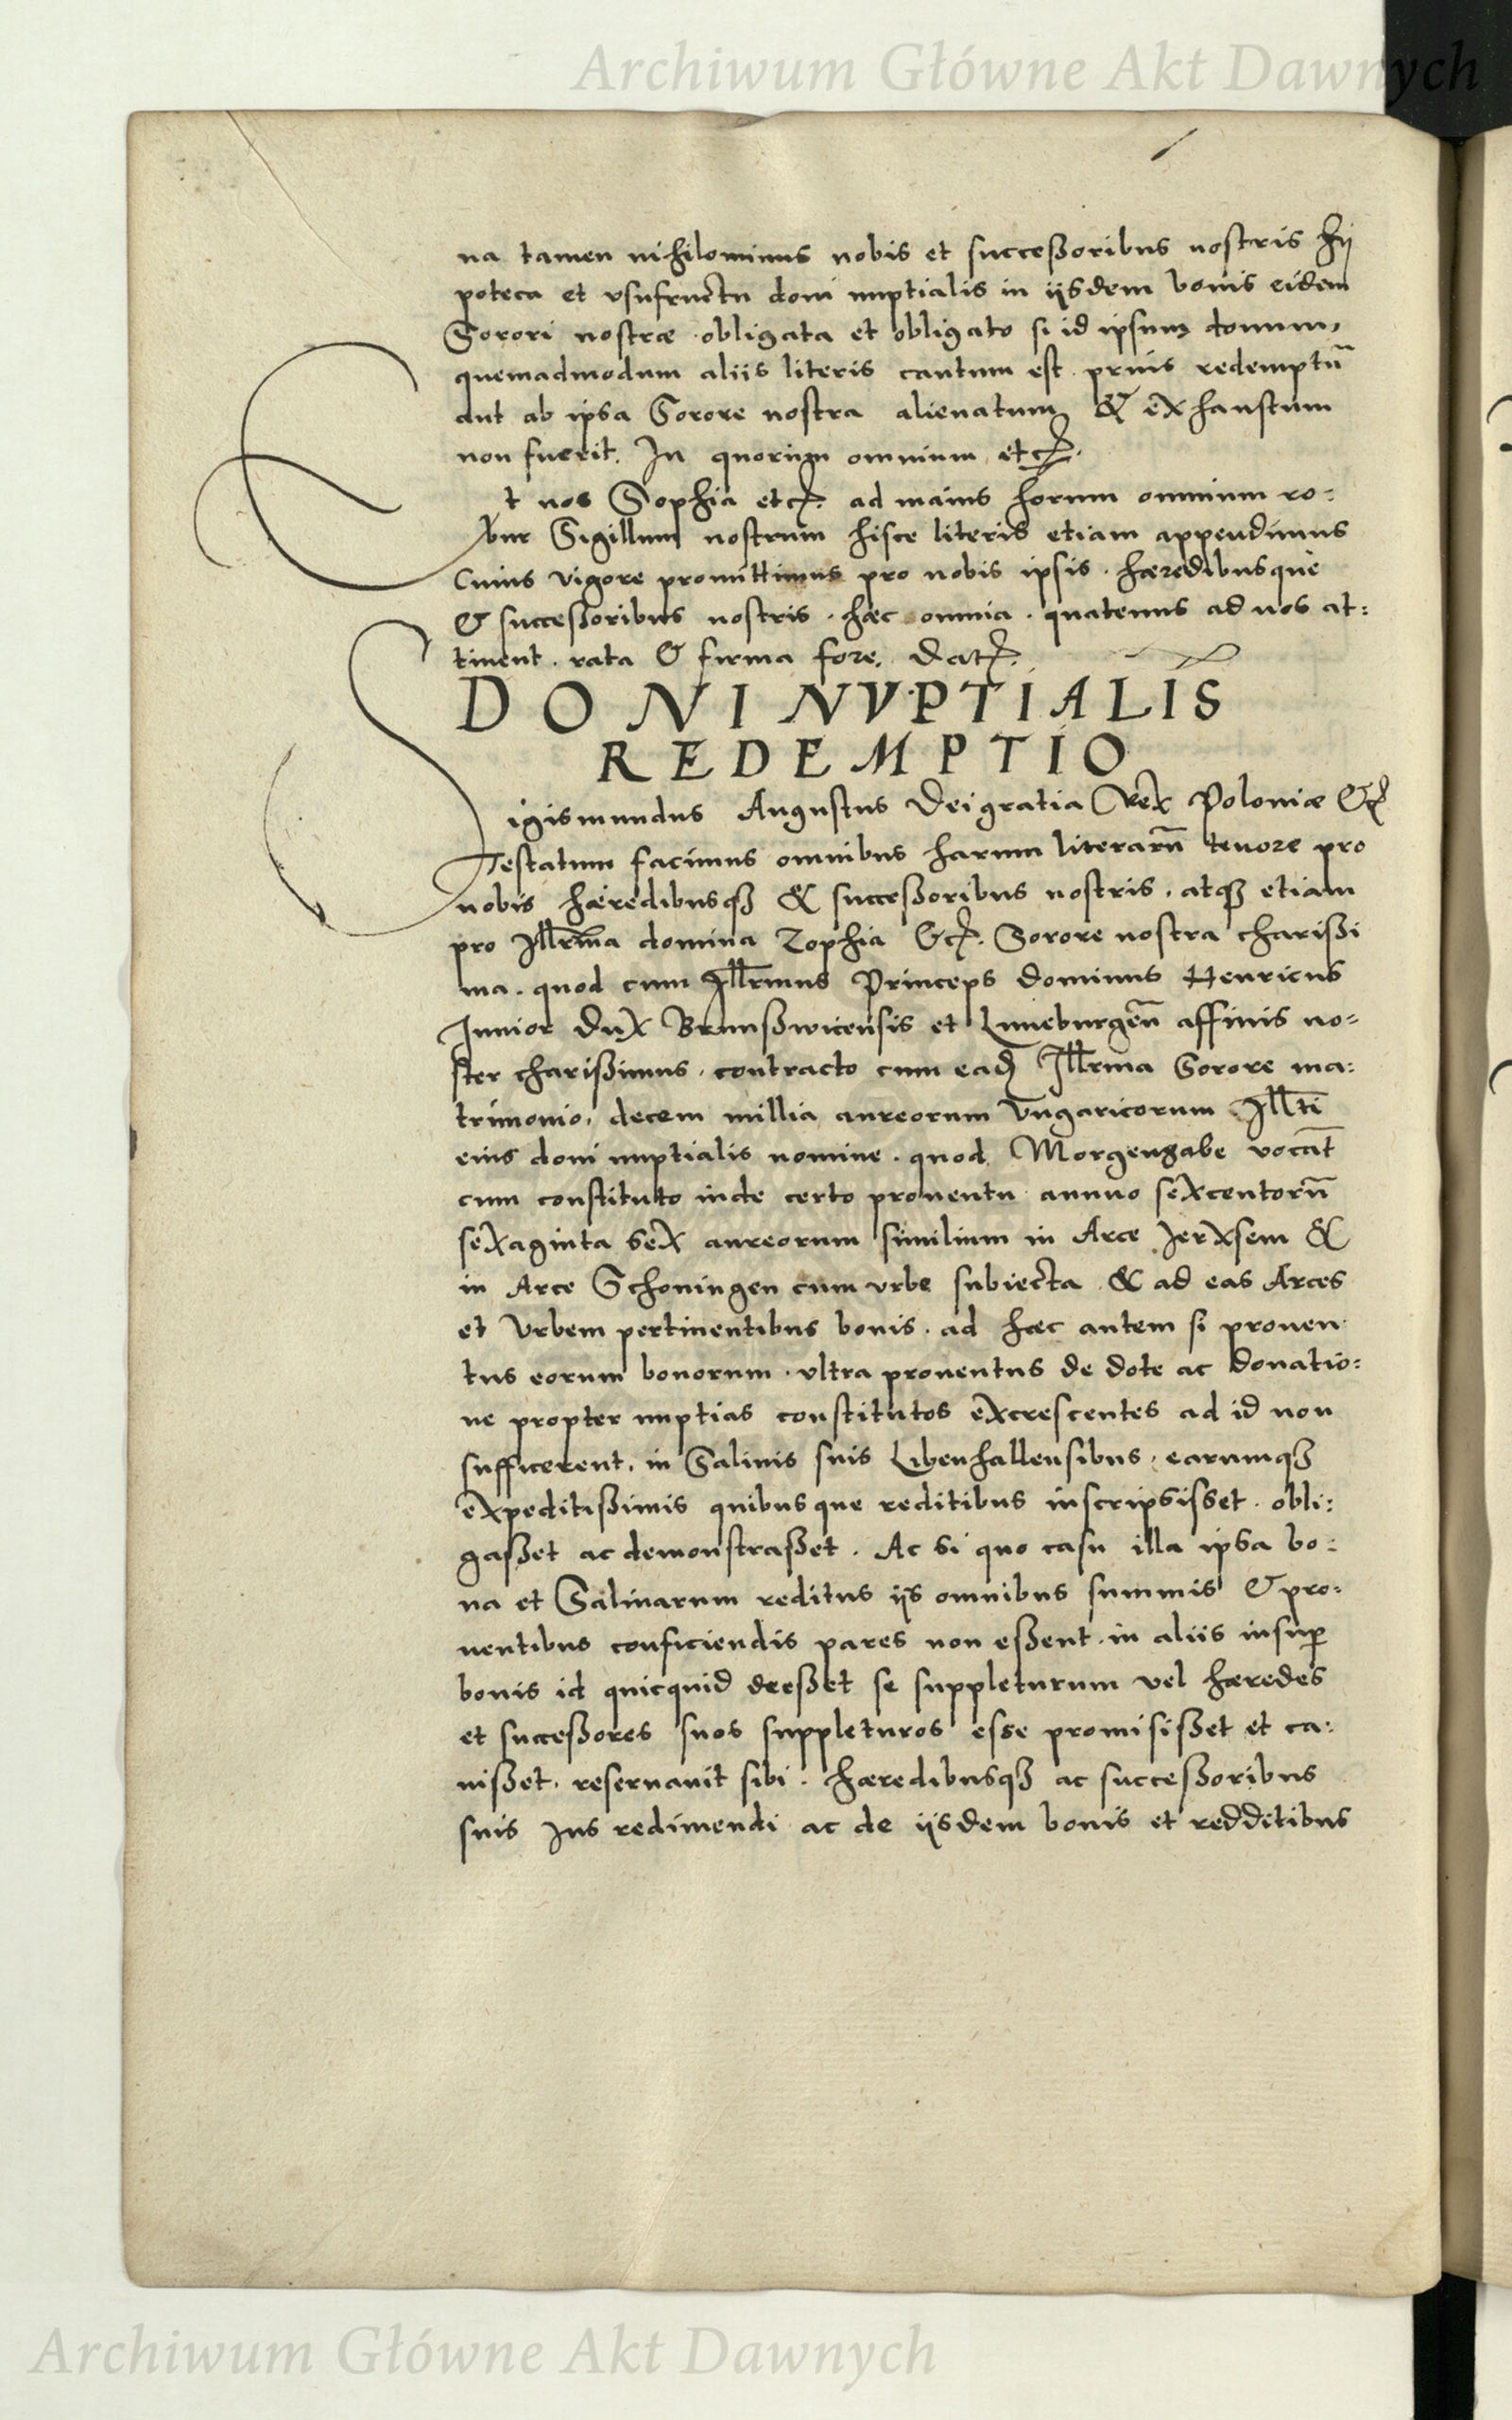 Archiwum Główne Akt Dawnych
na tamen nihilominus nobis et succeßoribus nostris hy
poteca et vsufructu doni nuptialis in ijsdem bonis eidem
Sorori nostræ obligata et obligato si id ipsum donum,
quemadmodum aliis literis cautum est. prius redemptū
aut ab ipsa Sorore nostra alienatum & exhaustum
non fuerit. In quorum omnium etc.
Et nos Sophia etc. ad maius horum omnium ro:
bur Sigillum nostrum hisce literis etiam appendimus
Cuius vigore promittimus pro nobis ipsis. hæredibusque
& succeßoribus nostris. hæc omnia. quatenus ad nos at:
tinent. rata & firma fore. Dat.
DONI NVPTIALIS
REDEMPTIO
Sigismundus Augustus Dei gratia Rex Poloniæ &c
Testatum facimus omnibus harum literarū tenore pro
nobis hæredibusqʒ & succeßoribus nostris. atqʒ etiam
pro Illrma domina Zophia &c. Sorore nostra charißi
ma. quod cum Illrmus Princeps dominus Henricus
Iunior Dux Brunßwicensis et Luneburgeñ affinis no=
ster charißimus. contracto cum ead Illrma Sorore ma:
trimonio, decem millia aureorum Vngaricorum Illti
eius doni nuptialis nomine. quod Morgengabe vocāt
cum constituto inde certo prouentu annuo sexcentorū
sexaginta sex aureorum similium in Arce Ierxsem &
in Arce Schoningen cum vrbe subiecta & ad eas Arces
et Vrbem pertinentibus bonis. ad hæc autem si prouen
tus eorum bonorum. vltra prouentus de dote ac donatio:
ne propter nuptias constitutos excrescentes ad id non
sufficerent. in Salinis suis Libenhallensibus. earumqʒ
expeditißimis quibusque reditibus inscripsisset. obli:
gaßet ac demonstraßet. Ac si quo casu illa ipsa bo:
na et Salinarum reditus ijs omnibus summis & pro:
uentibus conficiendis pares non eßent. in aliis insup
bonis id quicquid deeßet se suppleturum vel hæredes
et succeßores suos suppleturos esse promisißet et ca:
uißet. reseruauit sibi. hæredibusqʒ ac succeßoribus
suis Ius redimendi ac de ijsdem bonis et redditibus
Archiwum Główne Akt Dawnych